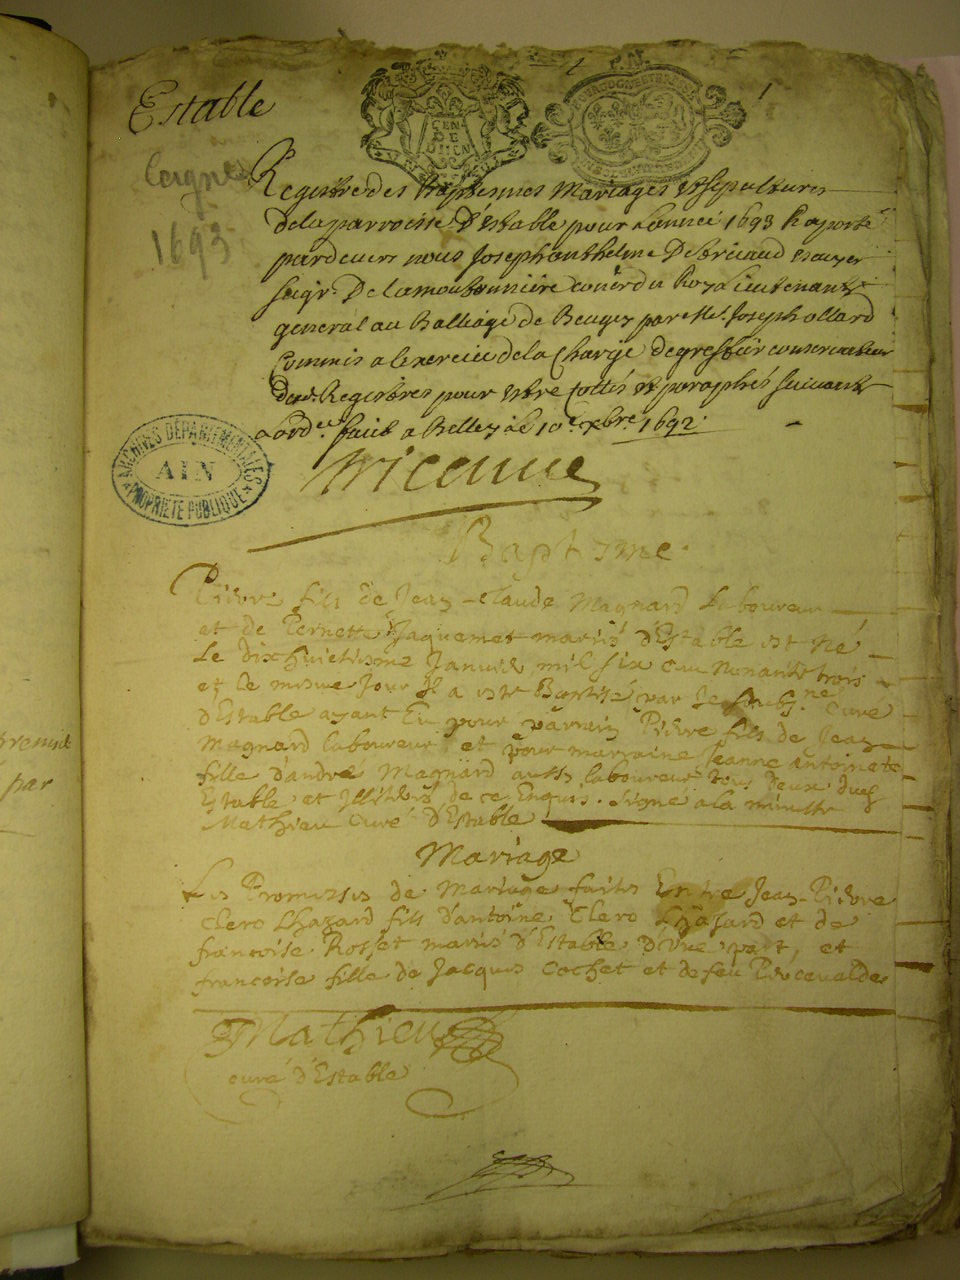 1
Estable
Ceignes
1693
GEN
DE
DIJON
Registre des Baptesmes Mariages et sepultures
de la parroisse d'Estable pour l'année 1693 Raporté
pardevers nous Joseph anthelme De Bricaud escuyer
seigr. De la mou conser du Roy Lieutenant
general au Balliage de Beugey par Me. Joseph ollard
Commis a l'exercice de la Charge de greffier conservateur
desd. Registres pour estre Cottés et paraphés suivant
a ord.ce faict a Belley ce 10e xbre 1692.
ARCHIVES DÉPARTEMENTALES
AIN
PROPRIÉTÉ PUBLIQUE
Baptisme.
Pierre fils de Jean-Claude Magnard Laboureur
et de Pernette Jaquemet mariés d'Estable est né
Le dixhuictiesme Janvier mil six cens nonante trois
et le mesme Jour Il a esté Baptisé par Je soubz.né Curé
d'Estable ayant Eu pour parrain Pierre fils de Jean
Magnard laboureur et pour marraine Jeanne Antoinete
fille d'andré Magnard aussi laboureur tous deux dud.
Estable et Illitérés de ce Enquis. Signé a la minutte
Mathieu Curé d'Estable
Mariage
Les Promesses de Mariage faites Entre Jean-Pierre
Clero Lhazard fils d'antoine Clero Lhazard et de
francoise Rosset mariés d'Estable d'Une part, et
francoise fille de Jacques Cochet et de feu
Mathieu
curé d'Estable
premier
par